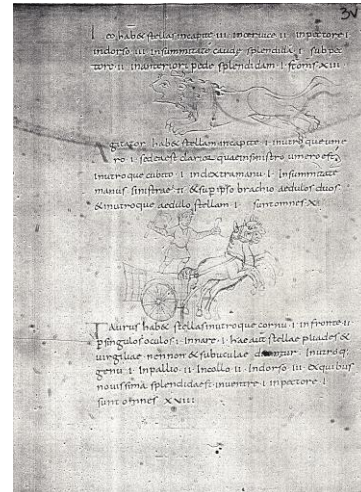 3v
Leo hab& stellas incapite · III · incervice · II · inpectore · I ·
indorso · III · insummitate caude splendida · I · subpec
tore · II · inanteriori pede splendidam · I · s̄ t̄ om̄s XIII
Agitator hab& stellam incapite · I · inutroque ume
ro · I · sed ea est clarior quae insinistro umero est
inutroque cubito · I · indextramanu · I · Insummitate
manus sinistrae · II · & supipso brachio aedulos duos
& inutroque aedulo stellam · I · sunt omnes XI
Taurus hab& stellas inutroque cornu · I · infronte · II ·
p singulos oculos · I · Innare · I · hae aut̄ stellae pliades &
virgiliae nennon & subuculae Inutroq;
genu · I · Inpallio · II · Incollo · II · Indorso · III · exquibus
novissima splendida est · inventre · I · inpectore · I ·
sunt omnes XXIII